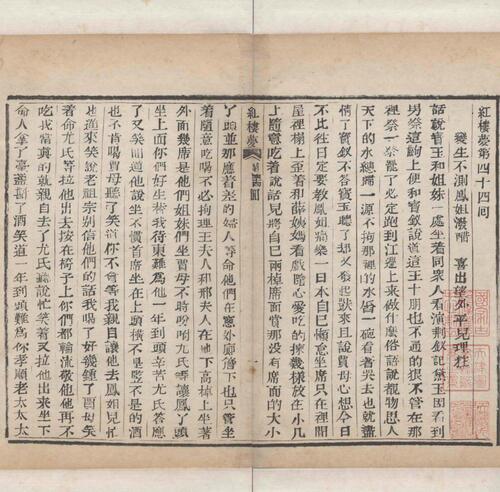 紅樓夢第四十四回
變生不測鳳姐潑醋　喜出望外平兒理粧
話說寳玉和姐妹一處坐着同眾人看演荆釵記黛玉因看到
男祭這齣上便和寳釵說道這王十朋也不通的狠不管在那
裡祭一祭罷了必定跑到江邊上來做什麼俗語說覩物思人
天下的水總歸一源不拘那裡的水舀一碗看着哭去也就盡
情了寳釵不答寳玉聽了却又發起獃來且說賈母心想今日
不比往日定要敎鳳姐痛樂一日本自己懶怠坐席只在裡間
屋裡榻上歪着和薛姨媽看戲隨心愛吃的揀幾樣放在小几
上隨意吃着說話兒將自己兩桌席面賞那没有席面的大小
紅樓夢　第四十四回
了頭並那應着差的婦人等命他們在窻外廊簷下也只管坐
着隨意吃喝不必拘禮王夫人和邢夫人在地下高桌上坐着
外面幾席是他們姐妹們坐賈母不時吩咐尤氏等讓鳳丫頭
坐上面你們好生替我待東難爲他一年到頭辛苦尤氏答應
了又笑回道他說坐不慣首席坐在上頭橫不是竪不是的酒
也不肯喝賈母聽了笑道你不會等我親自讓他去鳳姐兒忙
也進來笑說老祖宗别信他們的話我喝了好幾鍾了賈母笑
着命尤氏等拉他出去按在椅子上你們都輪流敬他他再不
吃我當真的就親自去了尤氏聽說忙笑着又拉他出來坐下
命人拿了臺盞斟了酒笑道一年到頭難爲你孝順老太太太